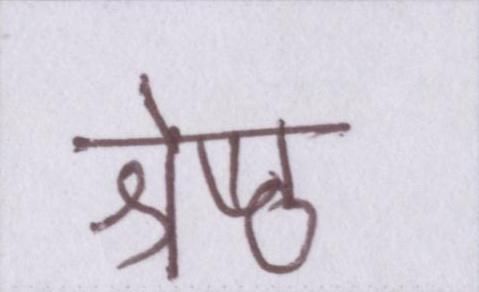 श्रेष्ठ